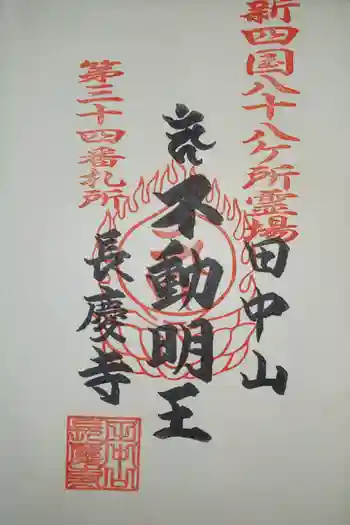 新四国八十八ケ所霊場
田中山
不動明王
第三十四番札所
長慶寺